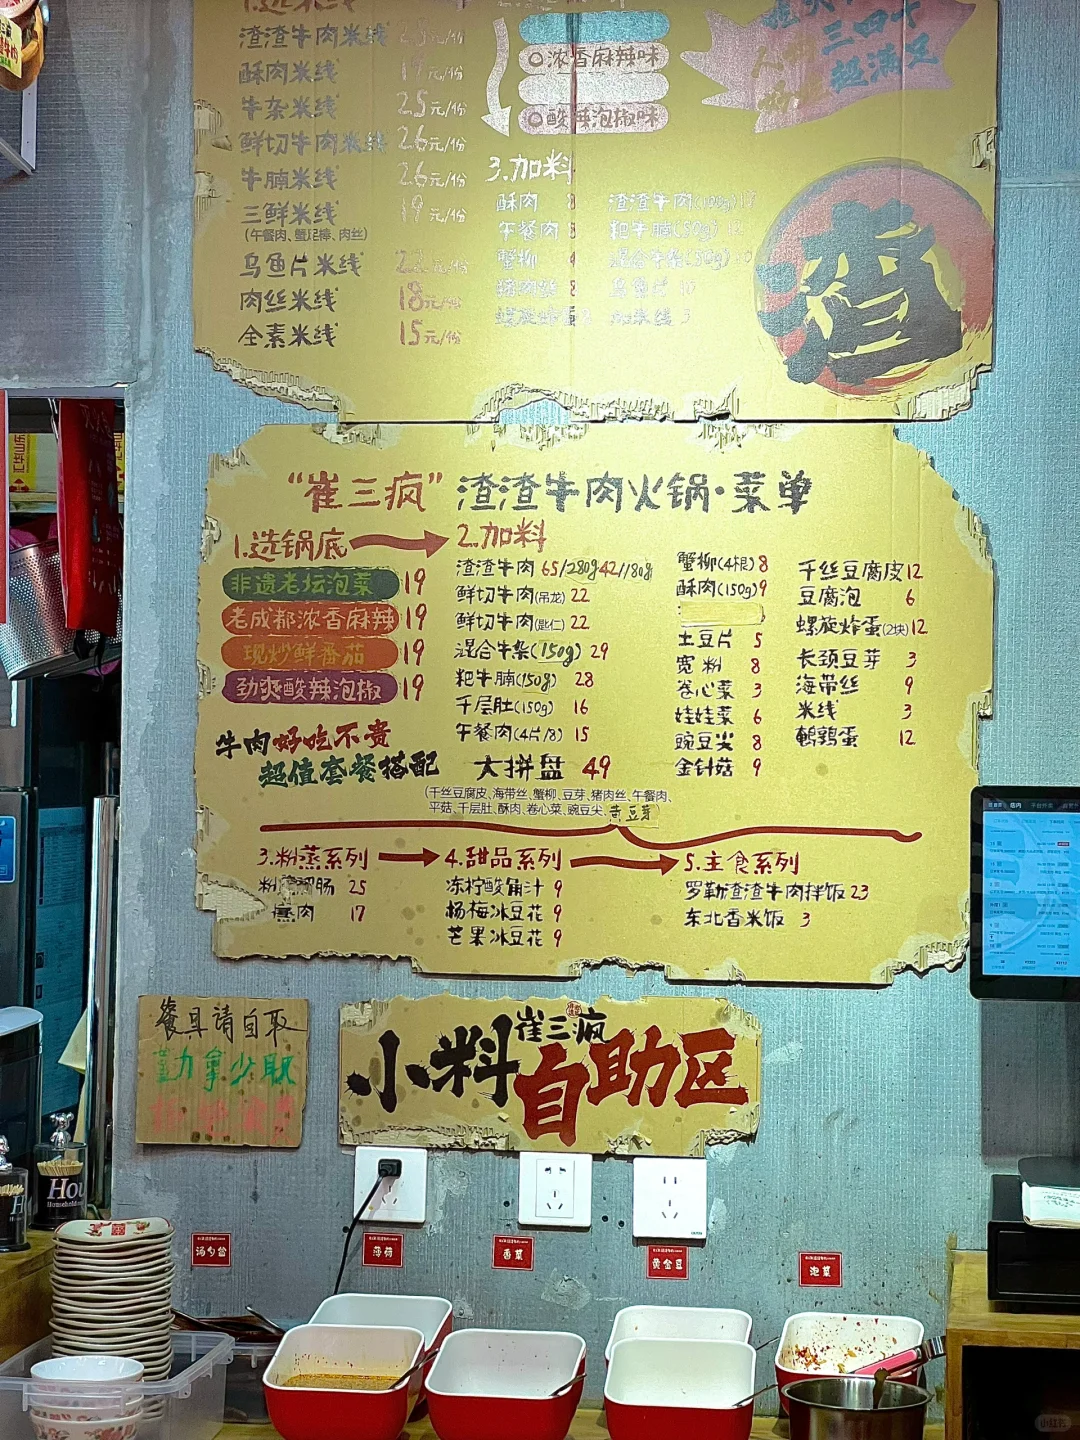 1.选米线
渣渣牛肉米线 元/份
酥肉米线 19元/份
牛杂米线 25元/份
鲜切牛肉米线 26元/份
牛腩米线 26元/份
三鲜米线 19元/份
(午餐肉、蟹足棒、肉丝)
乌鱼片米线 22元/份
肉丝米线 18元/份
全素米线 15元/份
浓香麻辣味
酸辣泡椒味
3.加料
酥肉 8
午餐肉 8
蟹柳 4
8
渣渣牛肉(100g)
粑牛腩(50g) 12
混合牛杂(50g) 10
乌鱼片 10
加米线 3
三四十
超满足
渣
“崔三疯”渣渣牛肉火锅·菜单
1.选锅底
非遗老坛泡菜 19
老成都浓香麻辣 19
现炒鲜番茄 19
劲爽酸辣泡椒 19
牛肉好吃不贵
超值套餐搭配
2.加料
渣渣牛肉 65/280g 42/180g
鲜切牛肉(吊龙) 22
鲜切牛肉(匙仁) 22
混合牛杂(150g) 29
粑牛腩(150g) 28
千层肚(150g) 16
午餐肉(4片/8) 15
大拼盘 49
(千丝豆腐皮、海带丝、蟹柳、豆芽、猪肉丝、午餐肉、
平菇、千层肚、酥肉、卷心菜、豌豆尖、黄豆芽
蟹柳(4根) 8
酥肉(150g) 9
土豆片 5
宽粉 8
卷心菜 3
娃娃菜 6
豌豆尖 8
金针菇 9
千丝豆腐皮 12
豆腐泡 6
螺旋炸蛋(2块) 12
长颈豆芽 3
海带丝 9
米线 3
鹌鹑蛋 12
3.粉蒸系列
肠 25
蒸肉 17
4.甜品系列
冻柠酸角汁 9
杨梅冰豆花 9
芒果冰豆花 9
5.主食系列
罗勒渣渣牛肉拌饭 23
东北香米饭 3
餐具请自取
勤拿少取
小料 崔三疯 自助区
Hou
Household
汤勺台
薄荷
香菜
黄金豆
泡菜
小红书